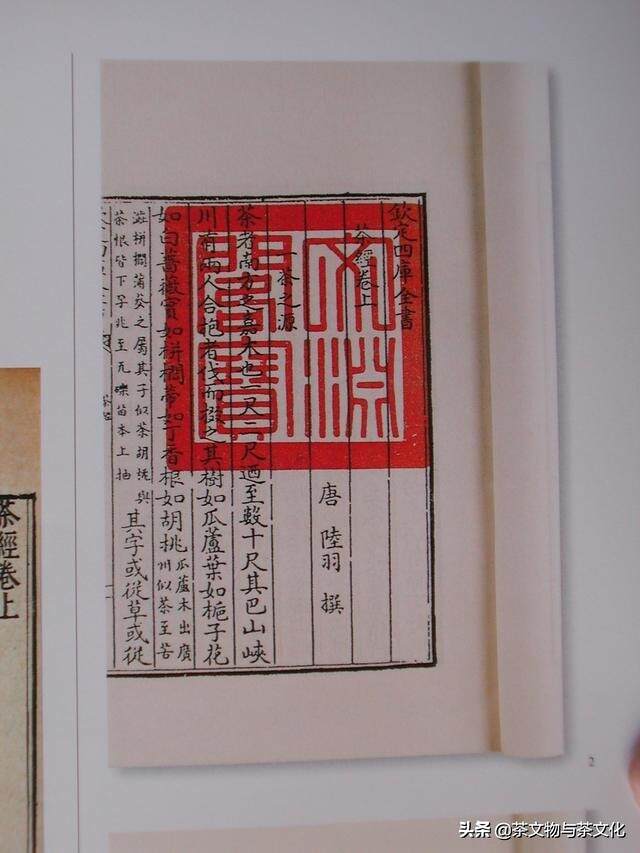 欽定四庫全書
茶經卷上
唐 陸羽 撰
一茶之源
茶者南方之嘉木也一尺二尺迺至數十尺其巴山峽
川有兩人合抱者伐而掇之其樹如瓜蘆葉如梔子花
如白薔薇實如栟櫚蒂如丁香根如胡桃
瓜蘆木出廣
州似茶至苦
澁栟櫚蒲葵之屬其子似茶胡桃與
茶根皆下孕兆至瓦礫苗木上抽
其字或從草或從
文淵閣寶
茶經卷上
2
头条 @茶文物与茶文化